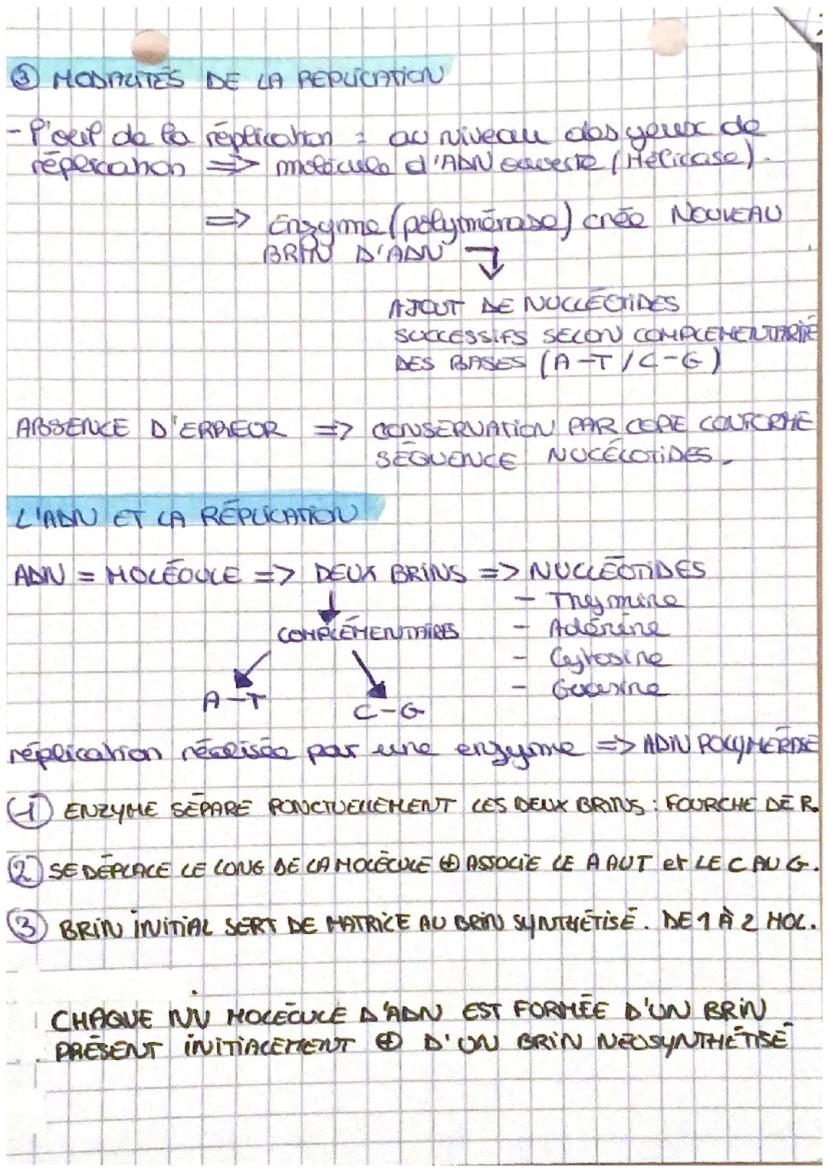 ③ MODALITÉS DE LA REPLICATION
- l'oeil de la réplication = au niveau des yeux de
réplication => molécule d'ADN ouverte (Hélicase).
=> Enzyme (polymérase) crée NOUVEAU
BRIN D'ADN
AJOUT DE NUCLÉOTIDES
SUCCESSIFS SELON COMPLEMENTARITÉ
DES BASES (A-T / C-G)
ABSENCE D'ERREUR => CONSERVATION PAR COPIE CONFORME
SÉQUENCE NUCÉLOTIDES.
L'ADN ET LA RÉPLICATION
ADN = MOLÉCULE => DEUX BRINS => NUCLÉOTIDES
- Thymine
COMPLÉMENTAIRES - Adénine
- Cytosine
- Guanine
A-T
C-G
réplication réalisée par une enzyme => ADN POLYMÉRASE
① ENZYME SÉPARE PONCTUELLEMENT LES DEUX BRINS : FOURCHE DE R.
② SE DÉPLACE LE LONG DE LA MOLÉCULE ⊕ ASSOCIE LE A AU T et LE C AU G.
③ BRIN INITIAL SERT DE MATRICE AU BRIN SYNTHÉTISÉ. DE 1 À 2 MOL.
CHAQUE NV MOLÉCULE D'ADN EST FORMÉE D'UN BRIN
PRÉSENT INITIALEMENT ⊕ D'UN BRIN NÉOSYNTHÉTISÉ